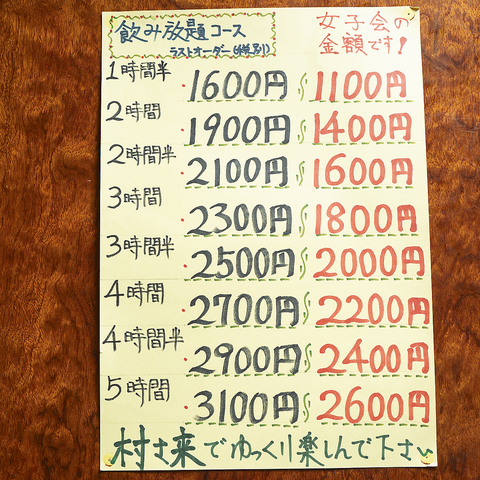 飲み放題コース
ラストオーダー(税別)
女子会の
金額です!
1時間半 ・1600円 1100円
2時間 ・1900円 1400円
2時間半 ・2100円 1600円
3時間 ・2300円 1800円
3時間半 ・2500円 2000円
4時間 ・2700円 2200円
4時間半 ・2900円 2400円
5時間 ・3100円 2600円
村さ来でゆっくり楽しんで下さい